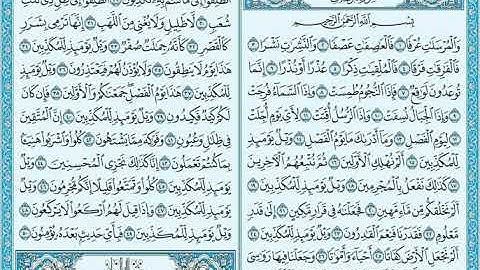 بِسْمِ اللَّهِ الرَّحْمَٰنِ الرَّحِيمِ
وَالْمُرْسَلَاتِ عُرْفًا ١ فَالْعَاصِفَاتِ عَصْفًا ٢ وَالنَّاشِرَاتِ نَشْرًا
٣ فَالْفَارِقَاتِ فَرْقًا ٤ فَالْمُلْقِيَاتِ ذِكْرًا ٥ عُذْرًا أَوْ نُذْرًا ٦ إِنَّمَا
تُوعَدُونَ لَوَاقِعٌ ٧ فَإِذَا النُّجُومُ طُمِسَتْ ٨ وَإِذَا السَّمَاءُ فُرِجَتْ
٩ وَإِذَا الْجِبَالُ نُسِفَتْ ١٠ وَإِذَا الرُّسُلُ أُقِّتَتْ ١١ لِأَيِّ يَوْمٍ أُجِّلَتْ
١٢ لِيَوْمِ الْفَصْلِ ١٣ وَمَا أَدْرَاكَ مَا يَوْمُ الْفَصْلِ ١٤ وَيْلٌ يَوْمَئِذٍ
لِلْمُكَذِّبِينَ ١٥ أَلَمْ نُهْلِكِ الْأَوَّلِينَ ١٦ ثُمَّ نُتْبِعُهُمُ الْآخِرِينَ
١٧ كَذَٰلِكَ نَفْعَلُ بِالْمُجْرِمِينَ ١٨ وَيْلٌ يَوْمَئِذٍ لِلْمُكَذِّبِينَ ١٩
أَلَمْ نَخْلُقْكُمْ مِنْ مَاءٍ مَهِينٍ ٢٠ فَجَعَلْنَاهُ فِي قَرَارٍ مَكِينٍ ٢١ إِلَىٰ قَدَرٍ
مَعْلُومٍ ٢٢ فَقَدَرْنَا فَنِعْمَ الْقَادِرُونَ ٢٣ وَيْلٌ يَوْمَئِذٍ لِلْمُكَذِّبِينَ ٢٤
أَلَمْ نَجْعَلِ الْأَرْضَ كِفَاتًا ٢٥ أَحْيَاءً وَأَمْوَاتًا ٢٦ وَجَعَلْنَا فِيهَا رَوَاسِيَ
شُعَبٍ ٣٠ لَا ظَلِيلٍ وَلَا يُغْنِي مِنَ اللَّهَبِ ٣١ إِنَّهَا تَرْمِي بِشَرَرٍ
كَالْقَصْرِ ٣٢ كَأَنَّهُ جِمَالَتٌ صُفْرٌ ٣٣ وَيْلٌ يَوْمَئِذٍ لِلْمُكَذِّبِينَ ٣٤
هَٰذَا يَوْمُ لَا يَنْطِقُونَ ٣٥ وَلَا يُؤْذَنُ لَهُمْ فَيَعْتَذِرُونَ ٣٦ وَيْلٌ يَوْمَئِذٍ
لِلْمُكَذِّبِينَ ٣٧ هَٰذَا يَوْمُ الْفَصْلِ جَمَعْنَاكُمْ وَالْأَوَّلِينَ ٣٨ فَإِنْ كَانَ
لَكُمْ كَيْدٌ فَكِيدُونِ ٣٩ وَيْلٌ يَوْمَئِذٍ لِلْمُكَذِّبِينَ ٤٠ إِنَّ الْمُتَّقِينَ
فِي ظِلَالٍ وَعُيُونٍ ٤١ وَفَوَاكِهَ مِمَّا يَشْتَهُونَ ٤٢ كُلُوا وَاشْرَبُوا هَنِيئًا
بِمَا كُنْتُمْ تَعْمَلُونَ ٤٣ إِنَّا كَذَٰلِكَ نَجْزِي الْمُحْسِنِينَ ٤٤ وَيْلٌ
يَوْمَئِذٍ لِلْمُكَذِّبِينَ ٤٥ كُلُوا وَتَمَتَّعُوا قَلِيلًا إِنَّكُمْ مُجْرِمُونَ ٤٦ وَيْلٌ
يَوْمَئِذٍ لِلْمُكَذِّبِينَ ٤٧ وَإِذَا قِيلَ لَهُمُ ارْكَعُوا لَا يَرْكَعُونَ ٤٨
وَيْلٌ يَوْمَئِذٍ لِلْمُكَذِّبِينَ ٤٩ فَبِأَيِّ حَدِيثٍ بَعْدَهُ يُؤْمِنُونَ ٥٠